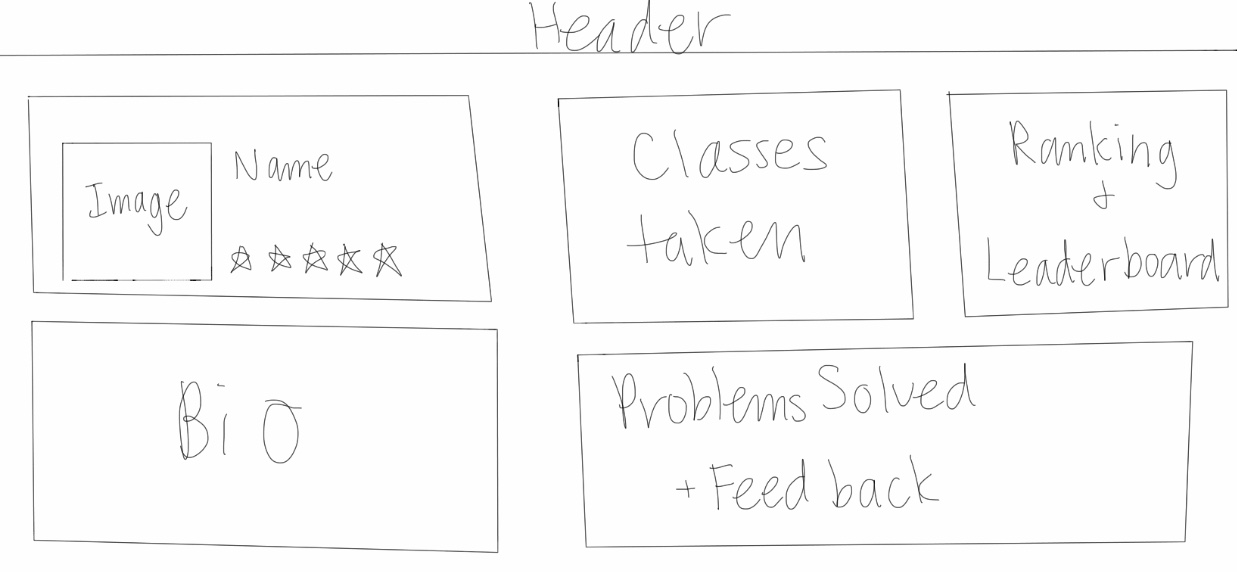 Header
Image
Name
Classes
taken
Ranking
+
Leaderboard
Bio
Problems Solved
+ Feedback